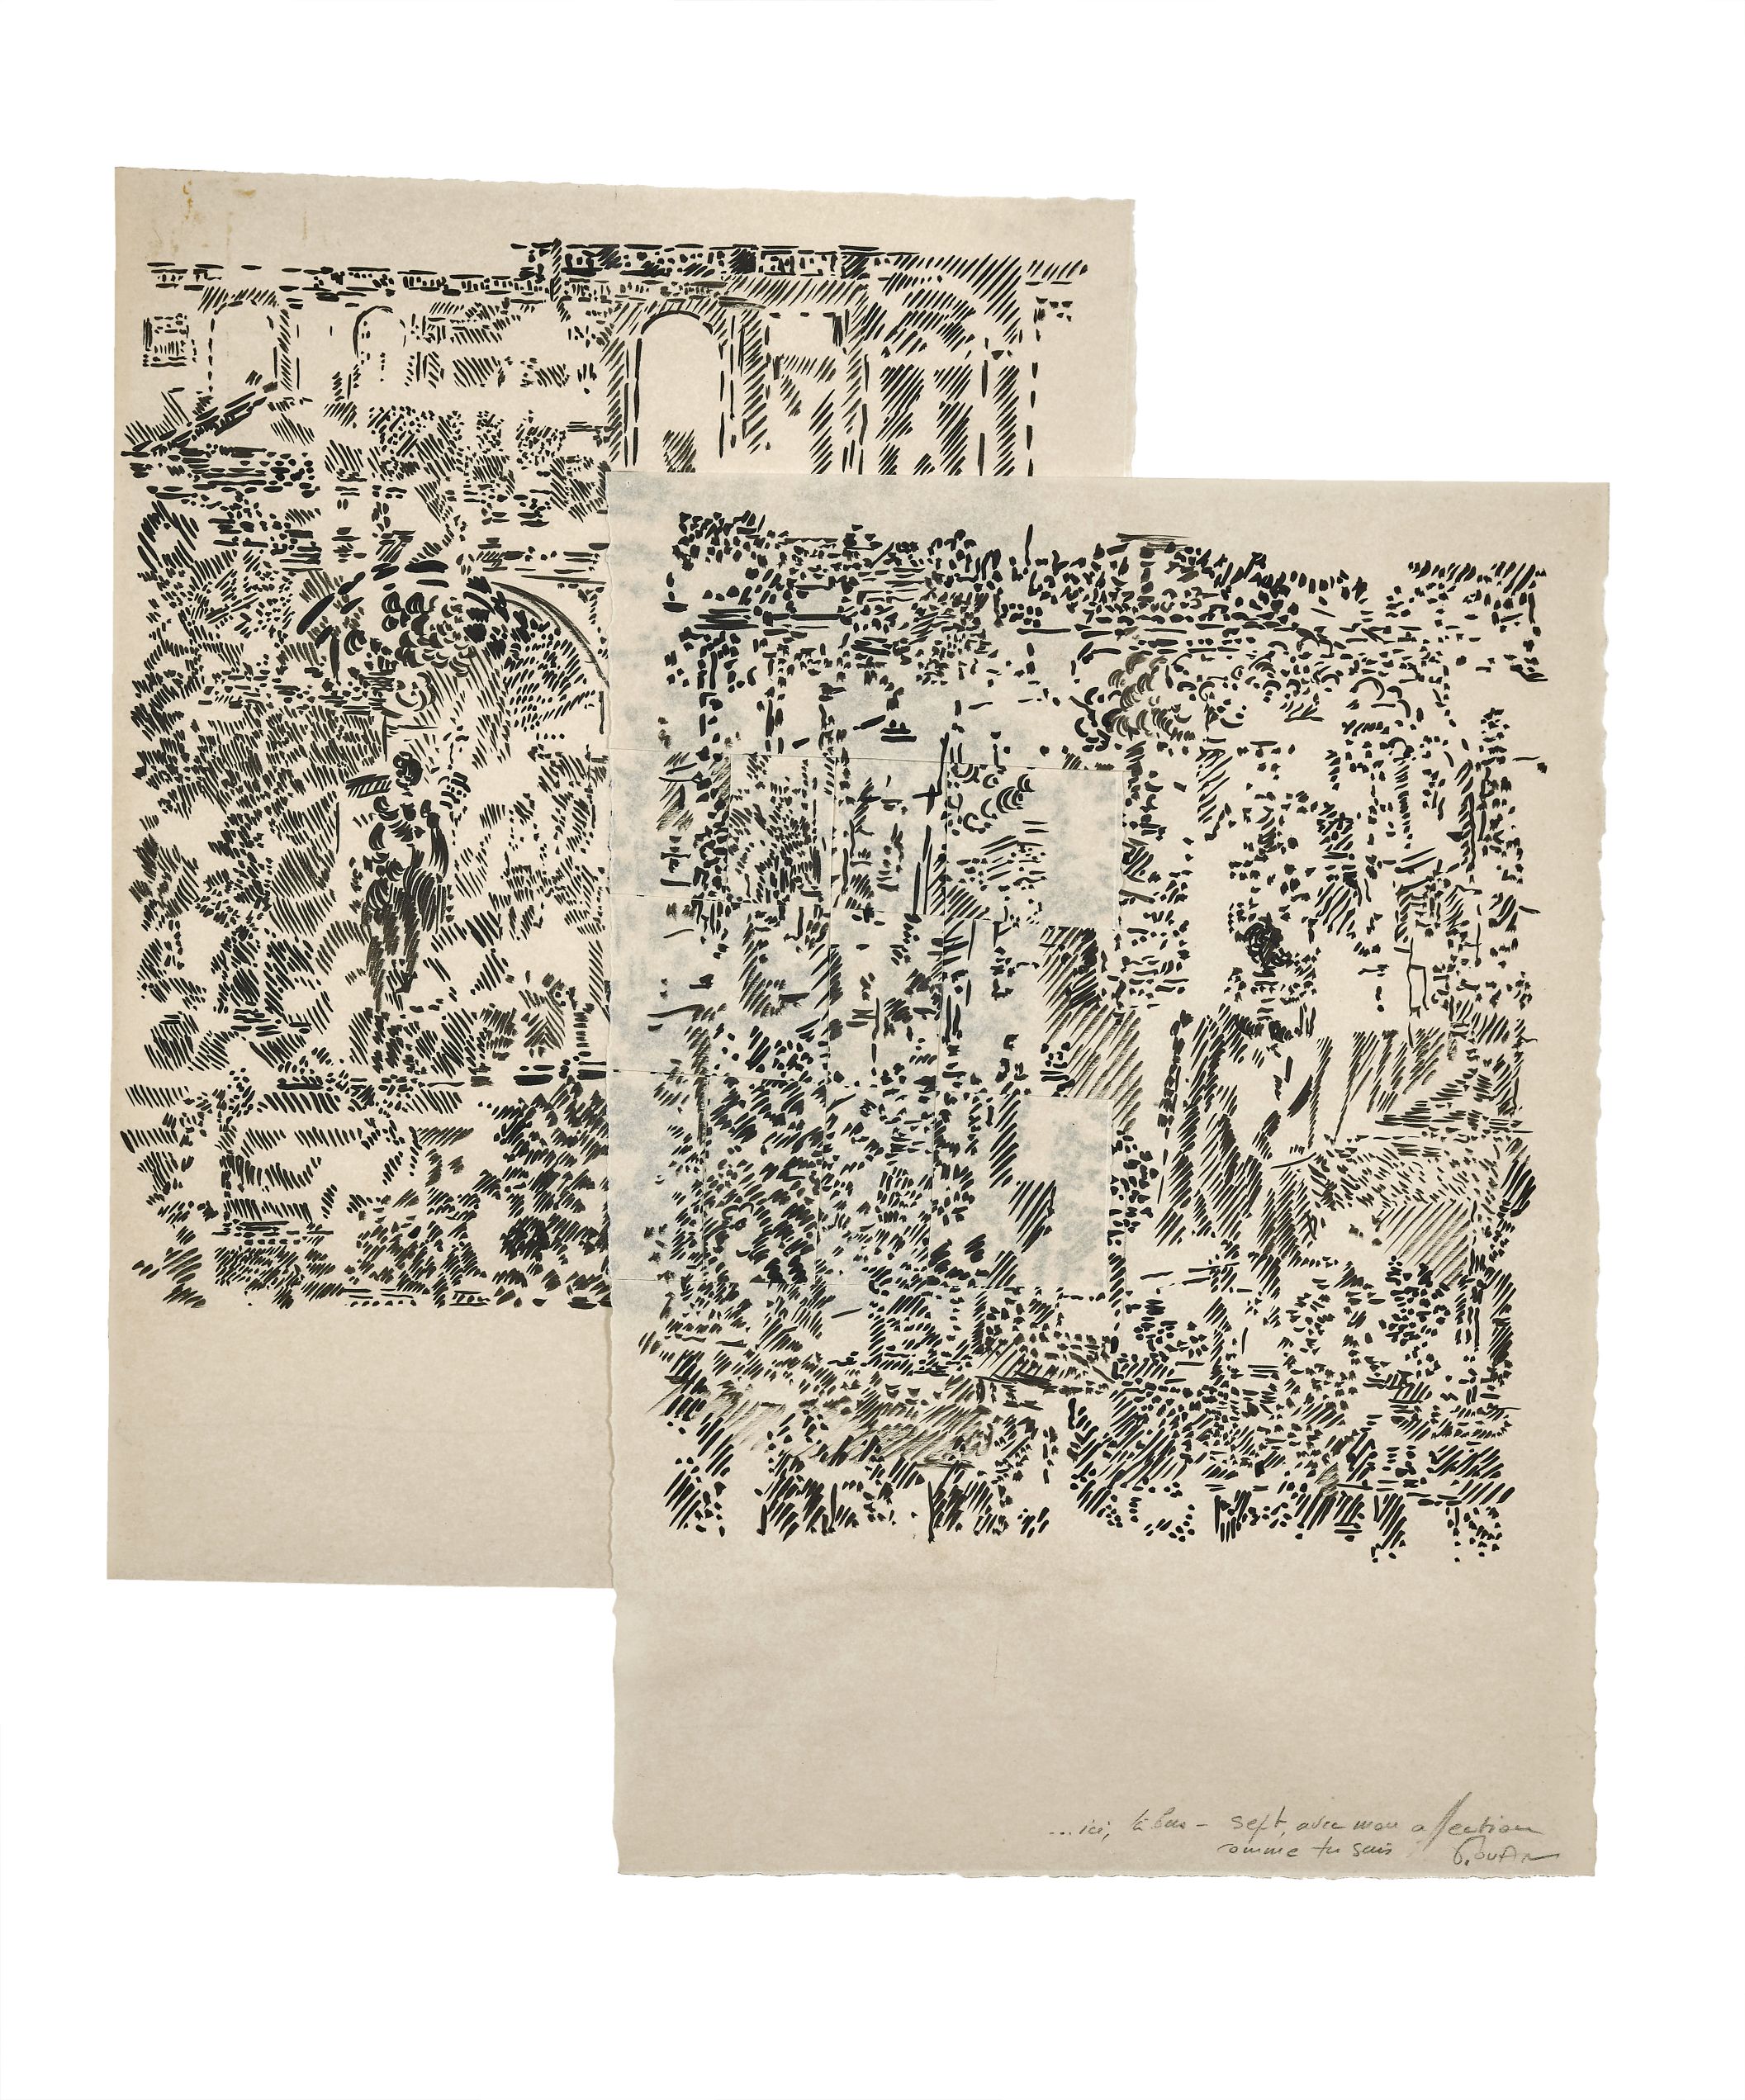 ...ici, là bas - sept, avec mon affection
comme tu sais Rouan